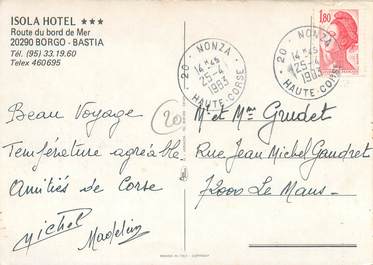 ISOLA HOTEL ★★★
Route du bord de Mer
20290 BORGO - BASTIA
Tél. (95) 33.19.60
Telex 460695
20 - NONZA
14 H 45
25-4
1983
HAUTE-CORSE
20 - NONZA
14 H 45
25-4
1983
HAUTE-CORSE
1,80
20
Beau Voyage
Température agréable
Amitiés de Corse
Michel
Madeleine
Mr et Mme Grudet
Rue Jean Michel Gaudret
72000 Le Mans